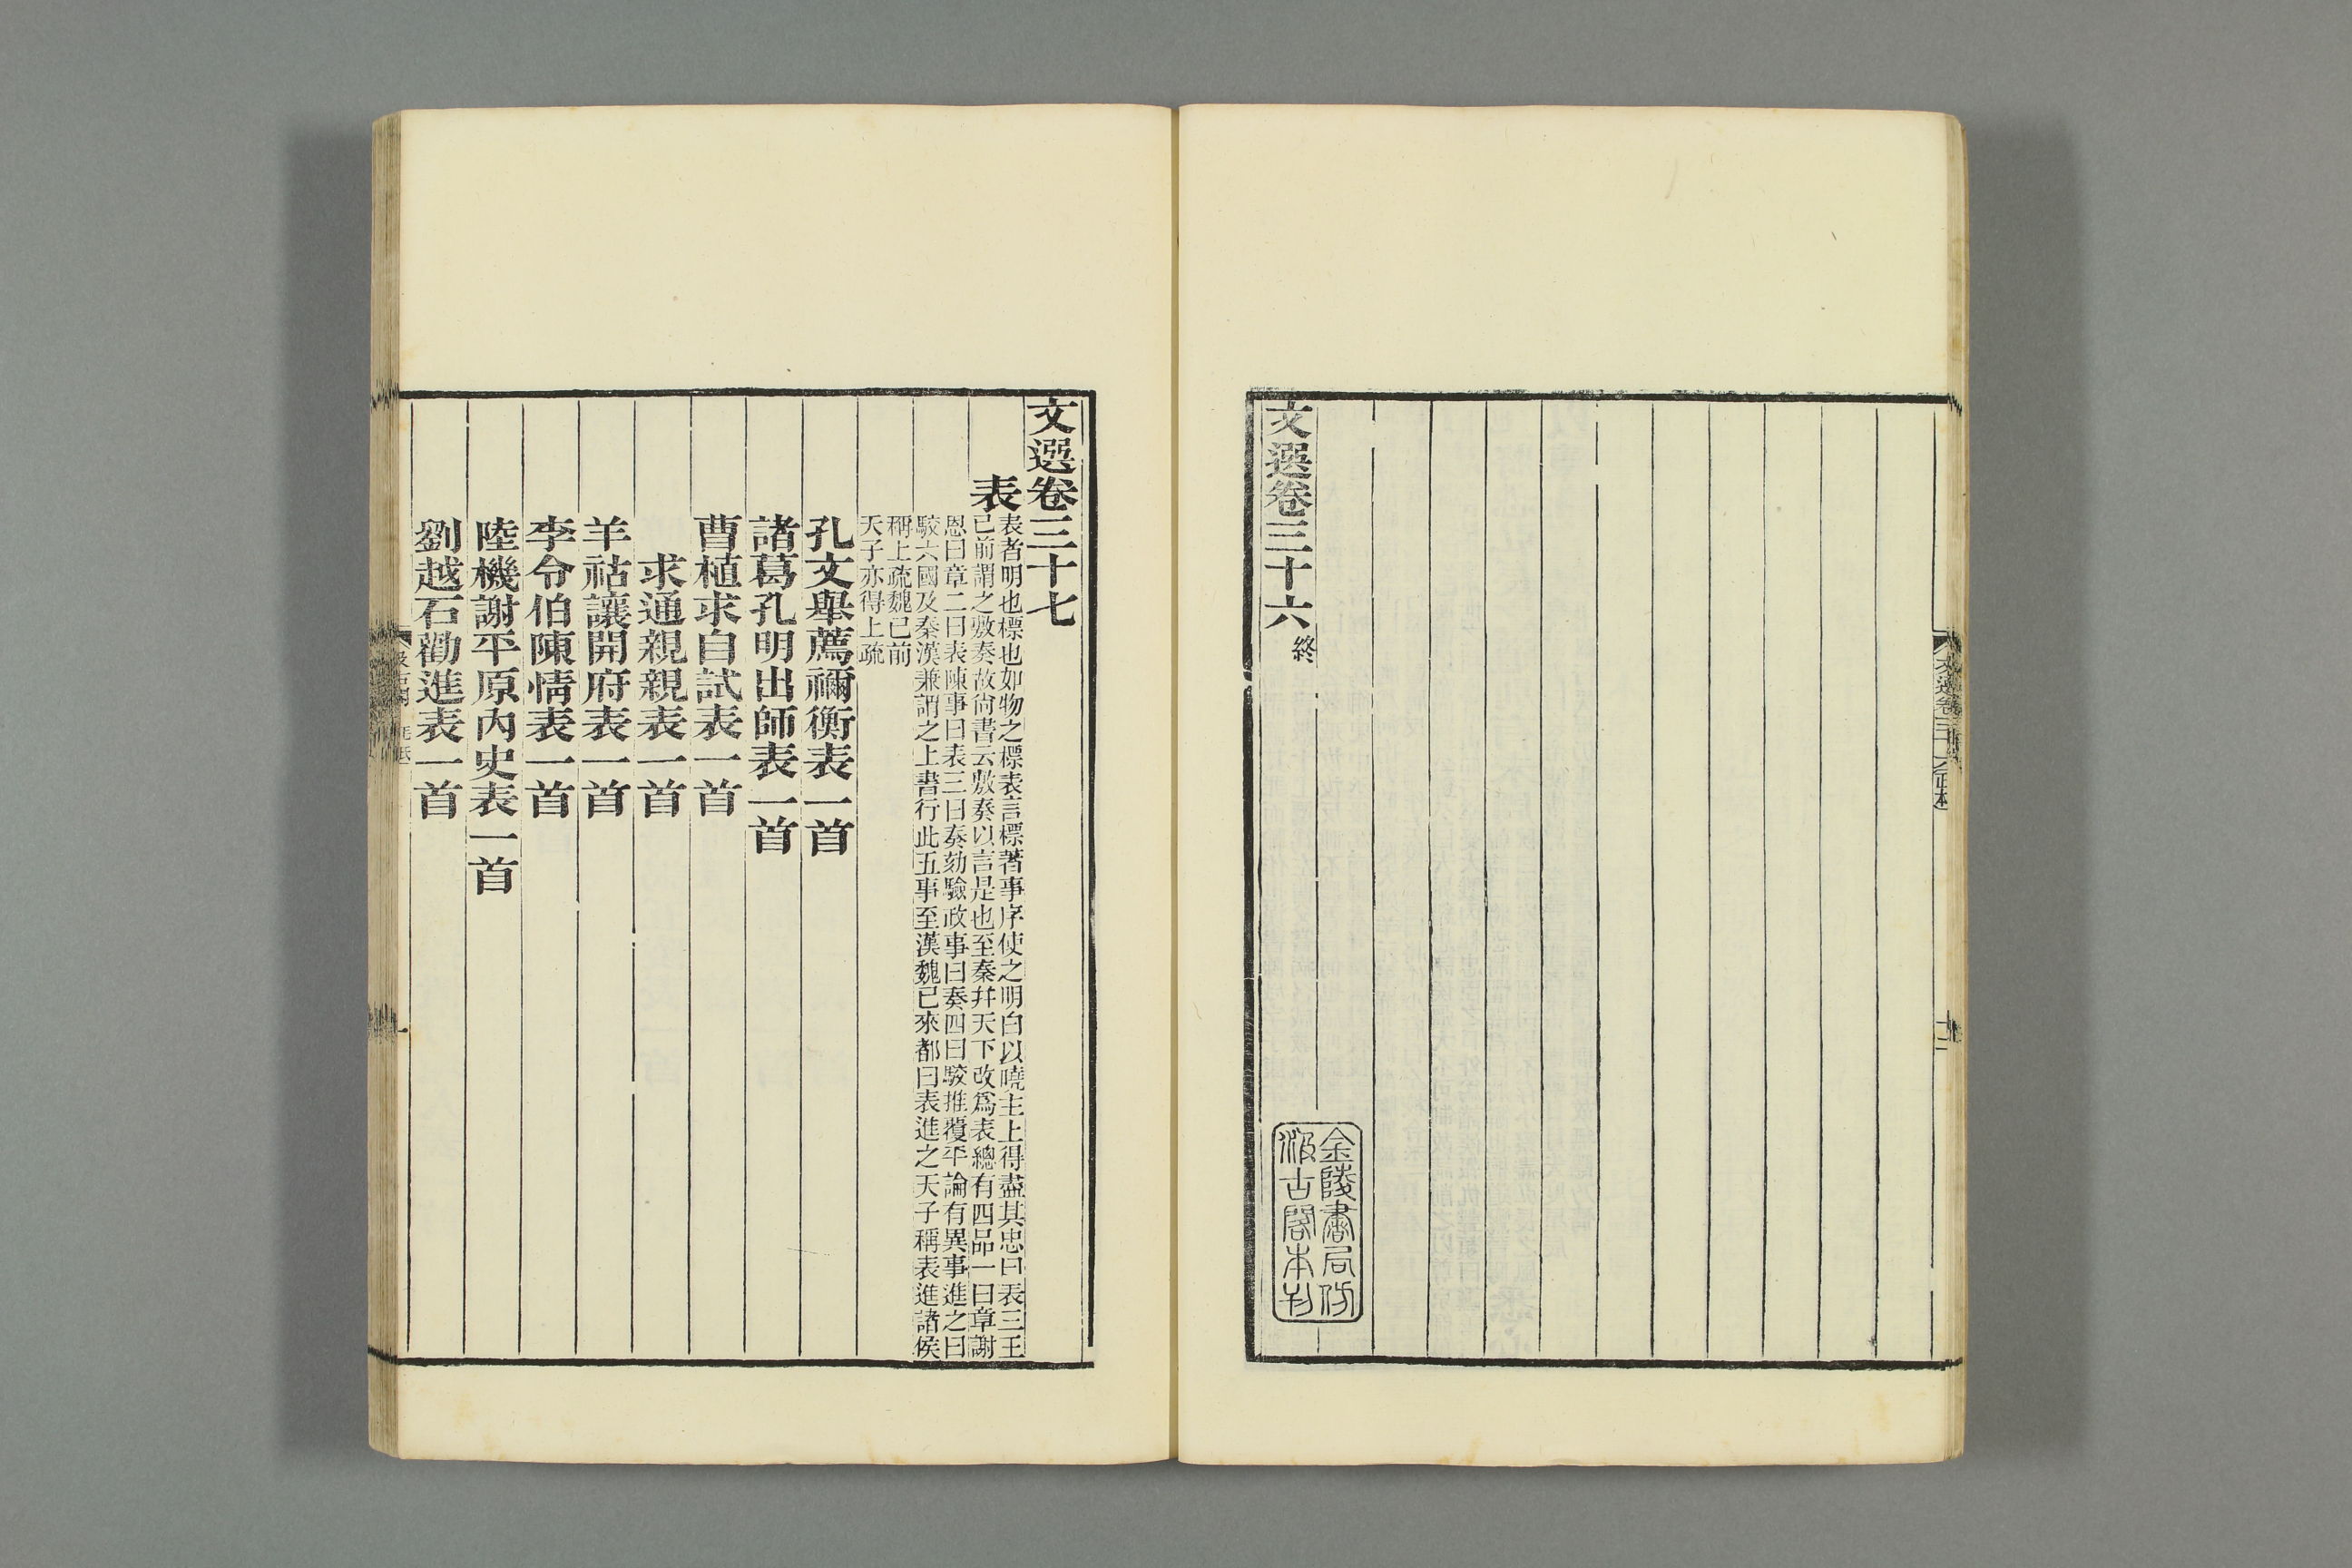 文選卷三十六終
金陵書局仿
汲古閣本刊
文選卷三十七
表
表者明也標也如物之標表言標著事序使之明白以曉主上得盡其忠曰表三王
已前謂之敷奏故尚書云敷奏以言是也至秦并天下改爲表總有四品一曰章謝
恩曰章二曰表陳事曰表三曰奏劾驗政事曰奏四曰駮推覆平論有異事進之曰
駮六國及秦漢兼謂之上書行此五事至漢魏已來都曰表進之天子稱表進諸侯
稱上疏魏已前
天子亦得上疏
孔文舉薦禰衡表一首
諸葛孔明出師表一首
曹植求自試表一首
求通親親表一首
羊祜讓開府表一首
李令伯陳情表一首
陸機謝平原內史表一首
劉越石勸進表一首